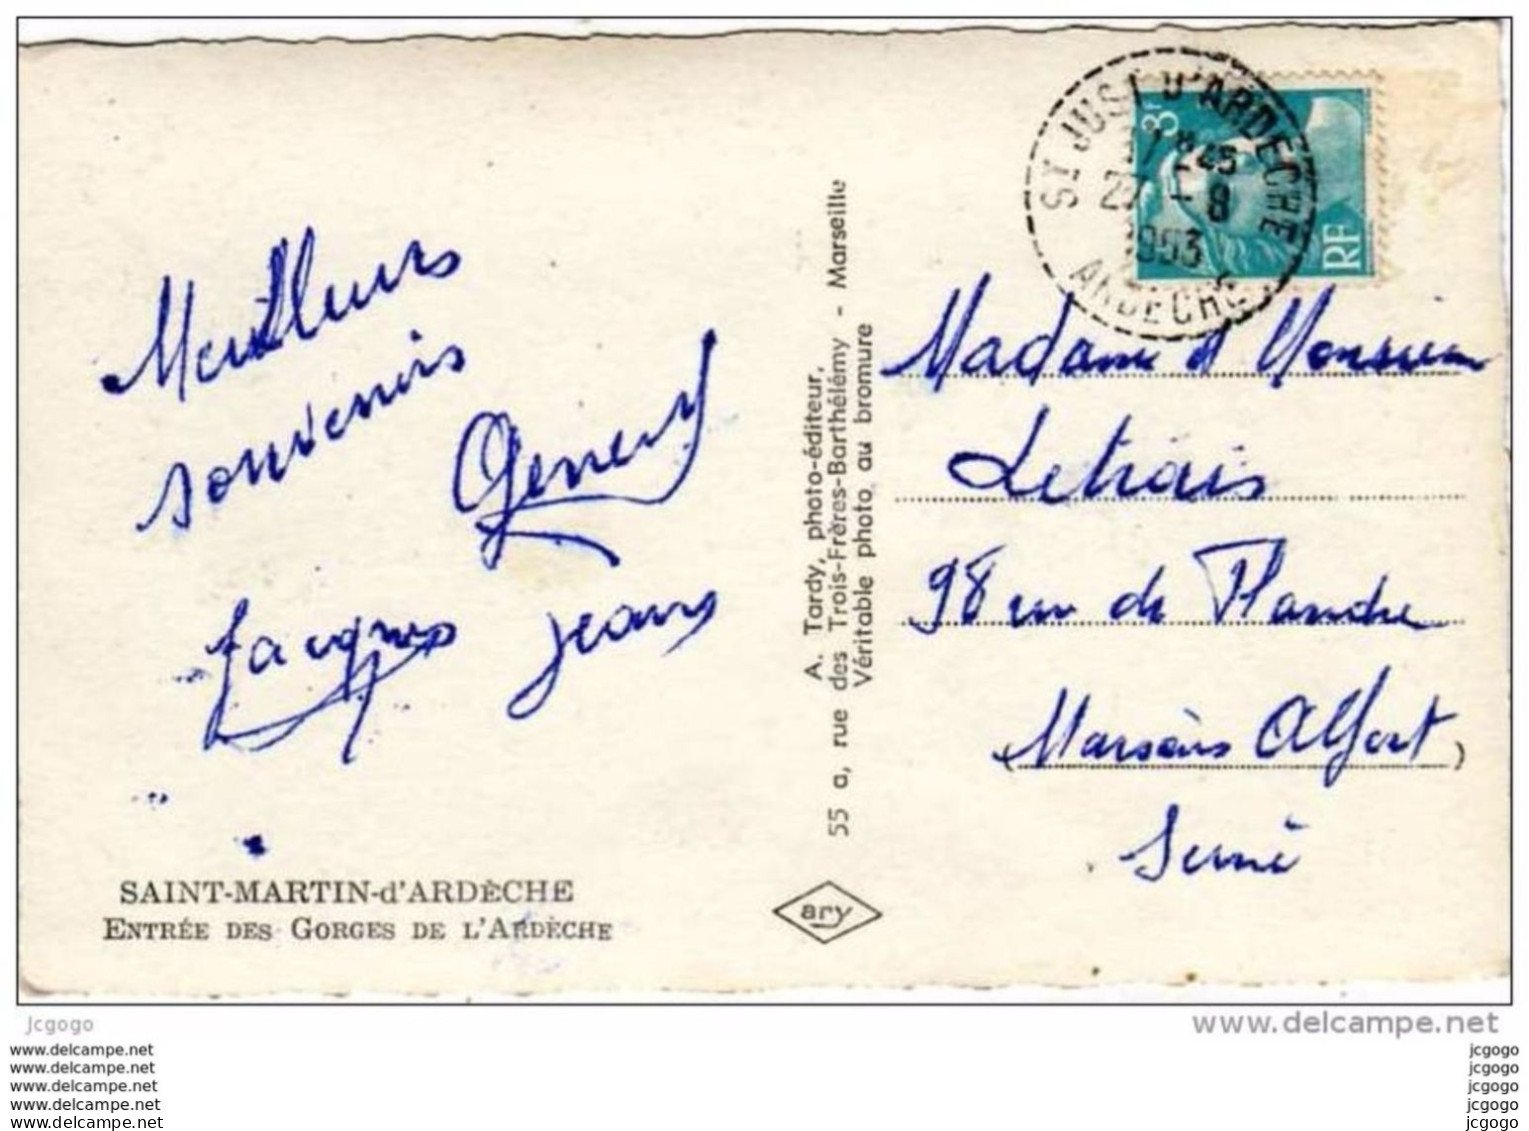 Meilleurs
souvenirs
Geneny
Jacques Jean
SAINT-MARTIN-d'ARDÈCHE
ENTRÉE DES GORGES DE L'ARDÈCHE
A. Tardy, photo-éditeur,
55 a, rue des Trois-Frères-Barthélémy - Marseille
Véritable photo au bromure
ary
ST JUST D'ARDECHE
1953
ARDECHE
3F
RF
Madame et Monsieur
Letrais
98 rue de Flandre
(Maisons Alfort)
Seine
jcgogo
www.delcampe.net
www.delcampe.net jcgogo
www.delcampe.net jcgogo
www.delcampe.net jcgogo
www.delcampe.net jcgogo
www.delcampe.net jcgogo